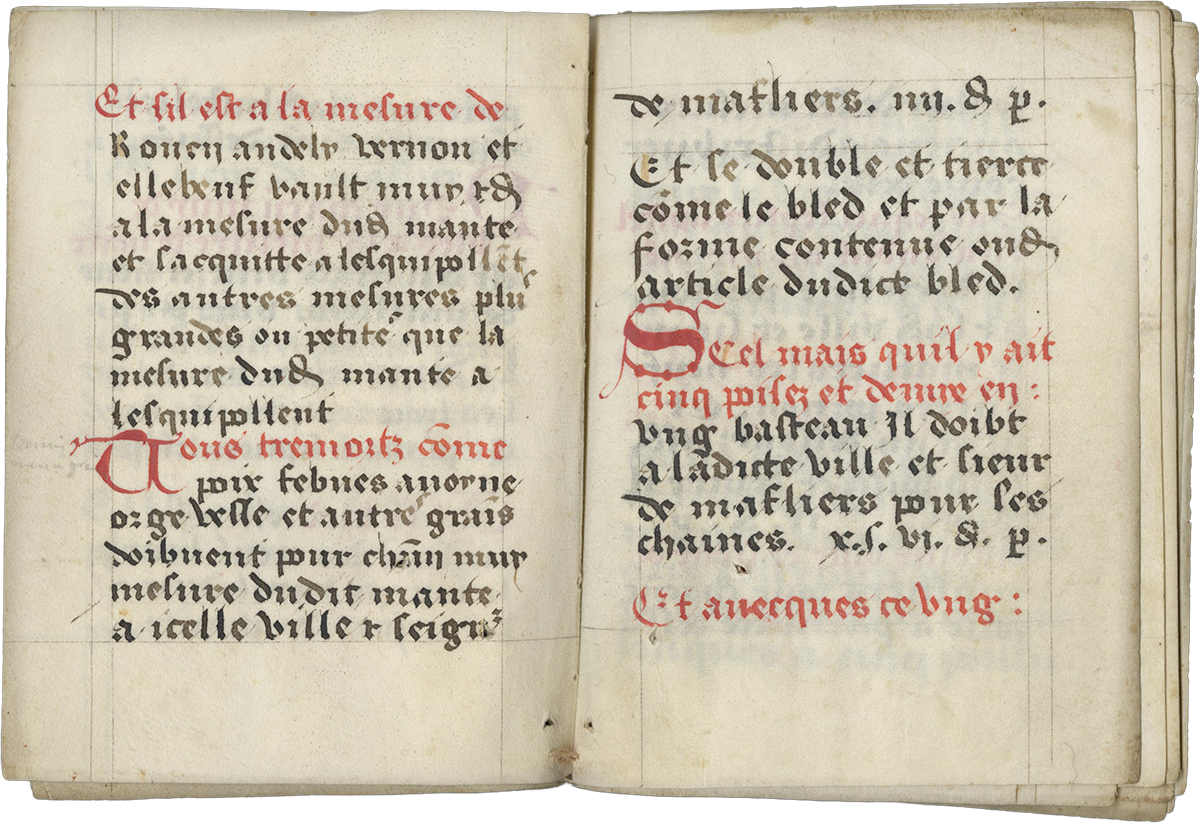 Et sil est a la mesure de
Rouen andely vernon et
ellebeuf vault muy et d
a la mesure dud mante
et sacquitte a lesquipollēt
des autres mesures plus
grandes ou petites que la
mesure dud mante a
lesquipollent
Tous tremortz cōme
poix febues avoyne
orge vesse et autres grais
doibuent pour chūn muy
mesure dudit mante
a icelle ville et seigr
de mafliers. iiij. d p.
Et se double et tierce
cōme le bled et par la
forme contenue oud
article dudict bled.
Seel mais quil y ait
cinq poisez et demye en :
vng basteau Il doibt
a ladicte ville et sieur
de mafliers pour les
chaines. x.s. vi. d. p.
Et auecques ce vng :